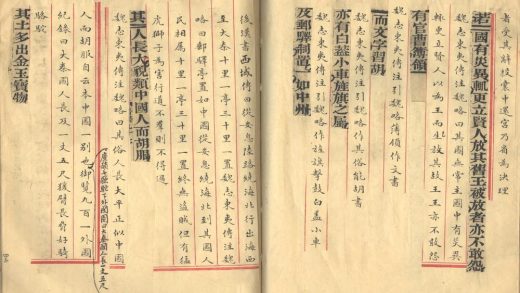 者受其辭投囊中還宮乃省為決理
若國有災異輒更立賢人放其舊王被放者亦不敢怨
魏志東夷傳注引魏略曰其國無常主國中有災異
輒更立賢人以為王而生放其故王王亦不敢怨
有官曹簿領
魏志東夷傳注引魏略簿領作文書
而文字習胡
魏志東夷傳注引魏略作其俗能胡書
亦有白蓋小車旌旗之屬
魏志東夷傳注引魏略作旌旗擊鼓白蓋小車
及郵驛制置一如中州
後漢書西域傳曰從安息陸路繞海北行出海西
至大秦十里一亭三十里一置魏志東夷傳注魏
略曰郵驛亭置如中國從安息繞海北到其國人
民相屬十里一亭三十里一置終無盜賊但有猛
虎獅子為害行道不羣則不得過
其人長大貌類中國人而胡服
魏志東夷傳注引魏略曰其俗人長大平正似中國
人而胡服自云本中國一別也御覽九百一外國
廣韻七歌駝下外國圖曰大秦國人長一丈五尺
紀錄曰大秦國人長及一丈五尺猨臂長脅好騎
駱駝
其土多出金玉寶物